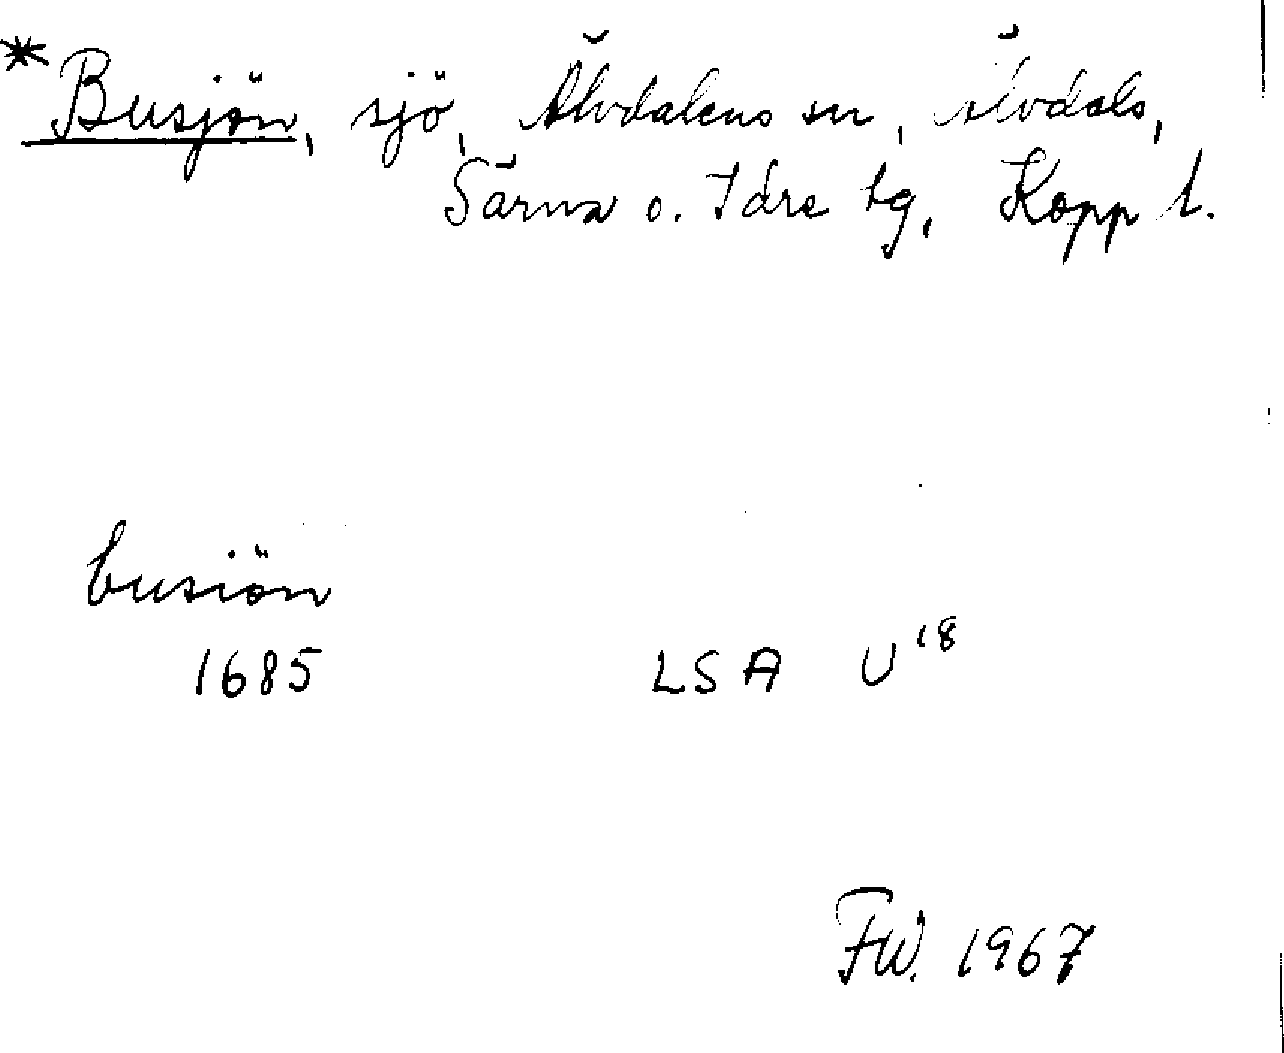 *Busjön, sjö, Älvdalens sn, Älvdals,
Särna o. Idre tg, Kopp l.
busiön
1685 LSA U18
FW. 1967